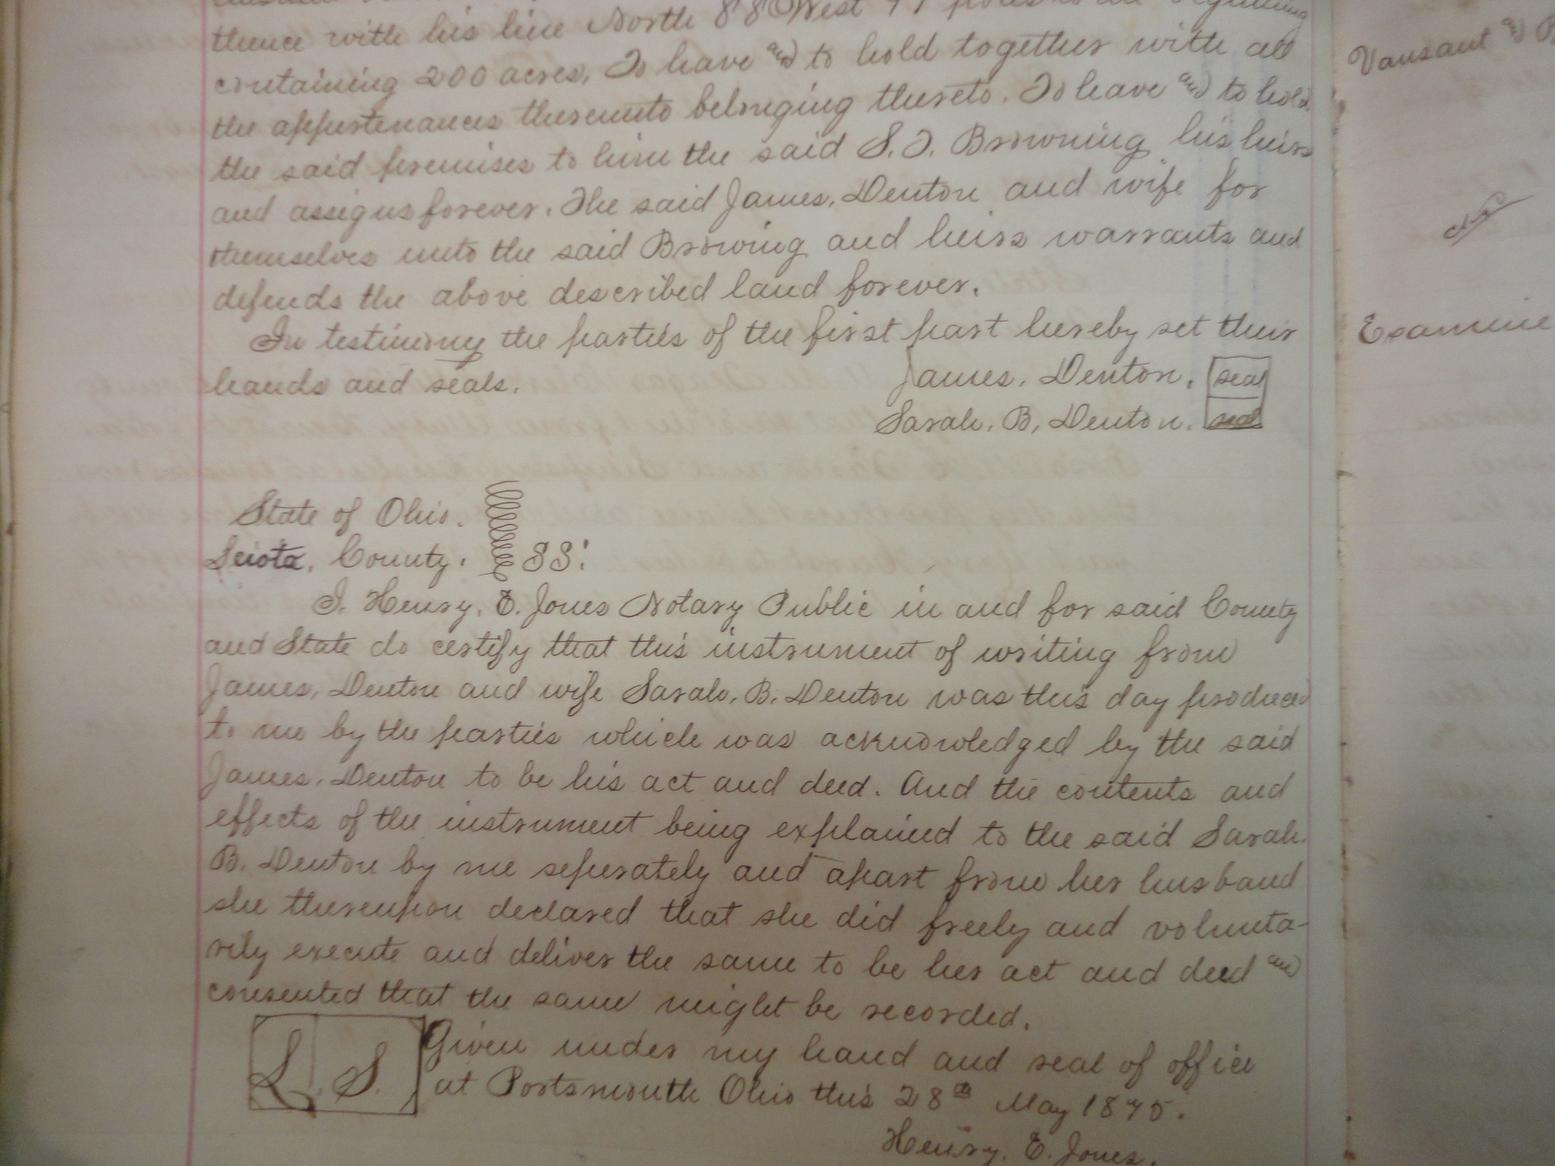 thence with his line North 88 West 97 poles to the beginning
containing 200 acres, To have and to hold together with all
the appurtenances thereunto belonging thereto. To have and to hold
the said premises to him the said S. T. Browning his heirs
and assigns forever. The said James, Denton and wife for
themselves unto the said Browing and heirs warrants and
defends the above described land forever.
In testimony the parties of the first part hereby set their
hands and seals. James, Denton, seal
Sarah, B, Denton. seal
State of Ohio.
Sciota, County. SS:
I. Henry, E. Jones Notary Public in and for said County
and State do certify that this instrument of writing from
James, Denton and wife Sarah, B. Denton was this day produced
to me by the parties which was acknowledged by the said
James, Denton to be his act and deed. And the contents and
effects of the instrument being explained to the said Sarah.
B. Denton by me seperately and apart from her husband
she thereupon declared that she did freely and volunta-
rily execute and deliver the same to be her act and deed and
consented that the same might be recorded.
L. S. Given under my hand and seal of office
at Portsmouth Ohio this 28th May 1875.
Henry, E. Jones.
Vansant &
Examine